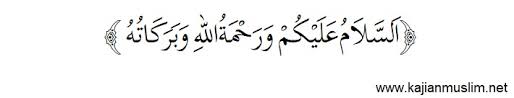 ﴿ اَلسَّلاَمُ عَلَيْكُمْ وَرَحْمَةُ اللهِ وَبَرَكَاتُهُ ﴾
www.kajianmuslim.net